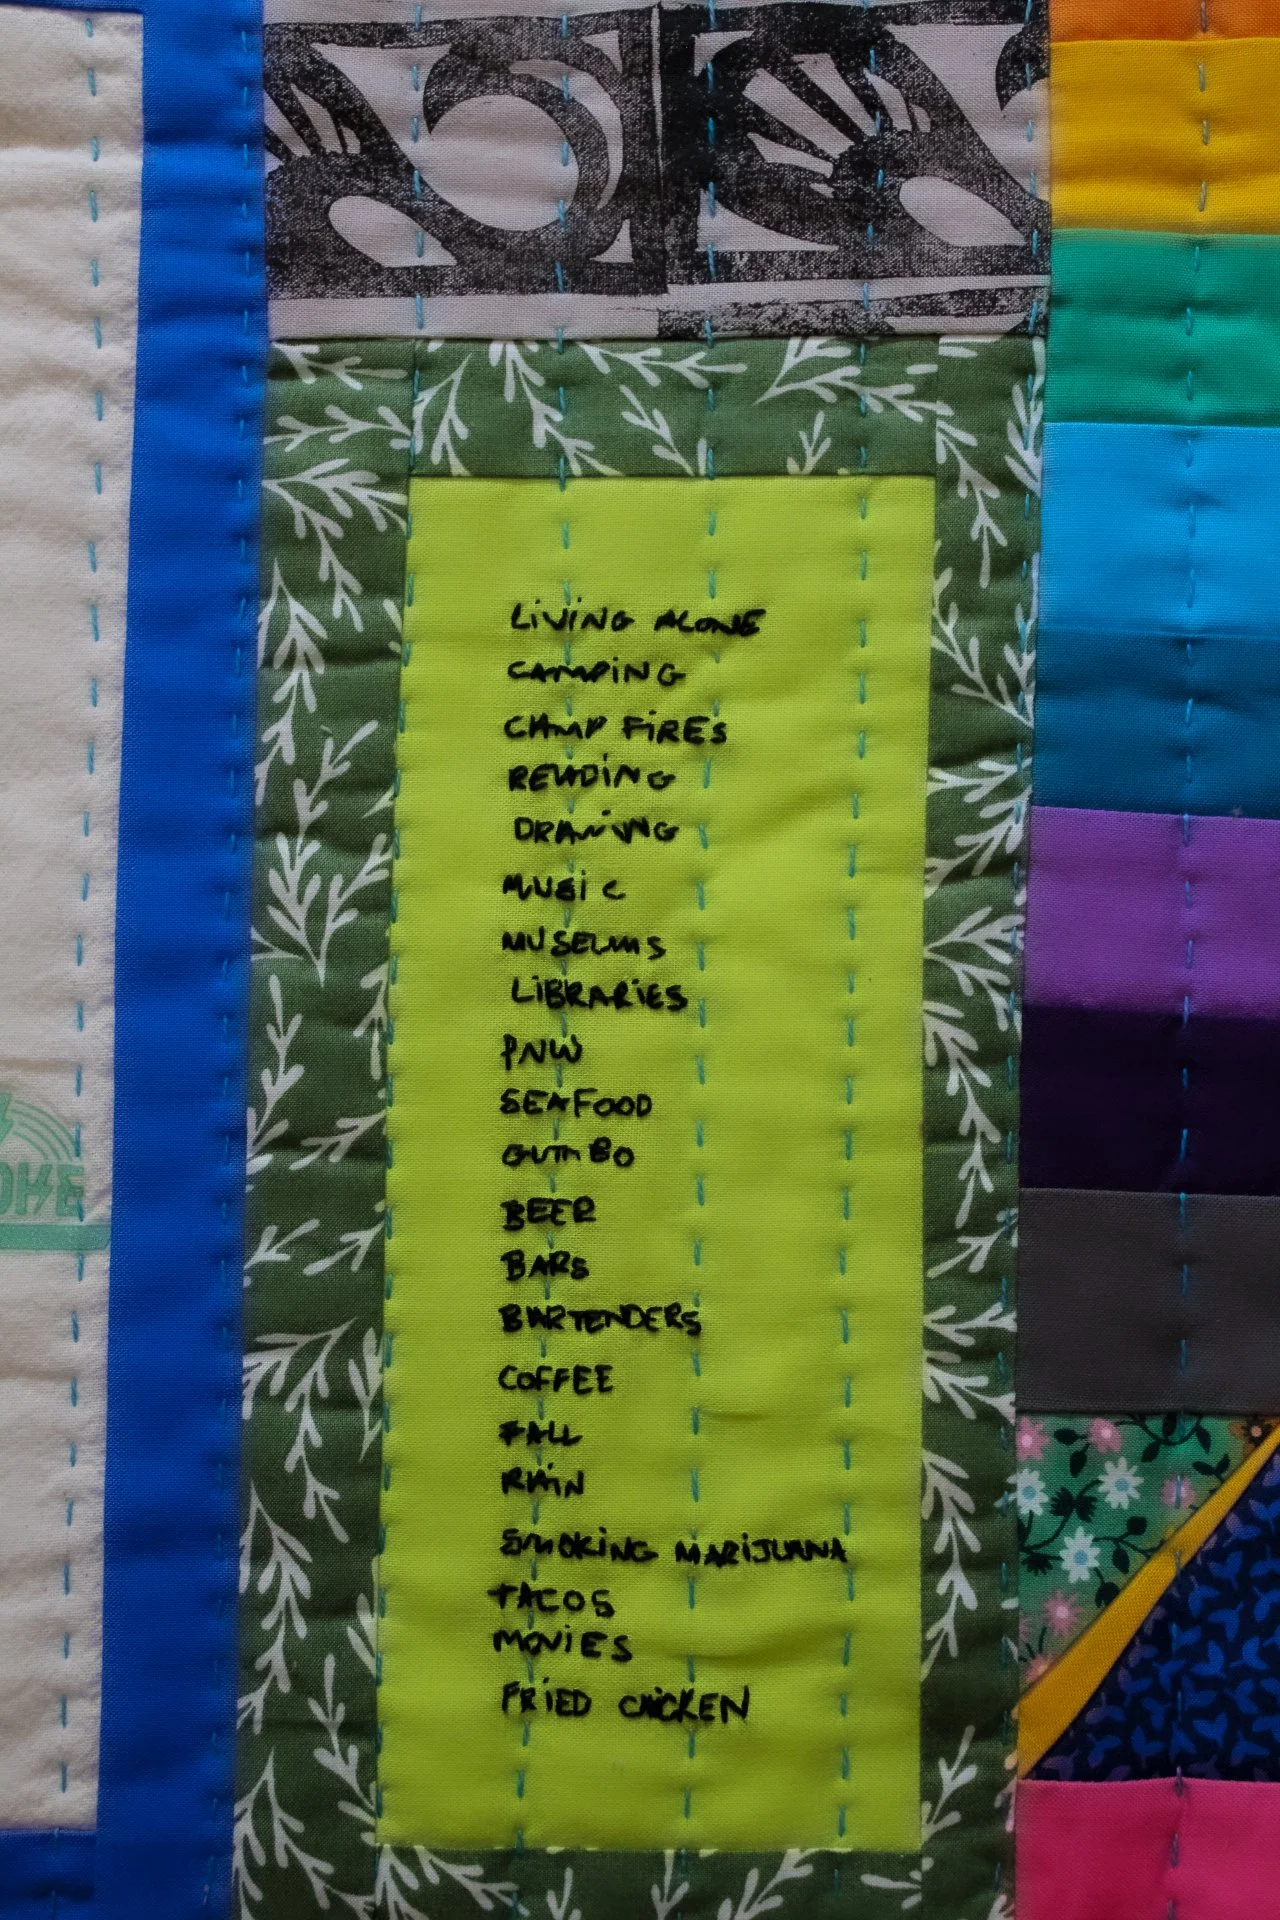 LIVING ALONE
CAMPING
CAMP FIRES
READING
DRAWING
MUSIC
MUSEUMS
LIBRARIES
PNW
SEAFOOD
GUMBO
BEER
BARS
BARTENDERS
COFFEE
FALL
RAIN
SMOKING MARIJUANA
TACOS
MOVIES
FRIED CHICKEN